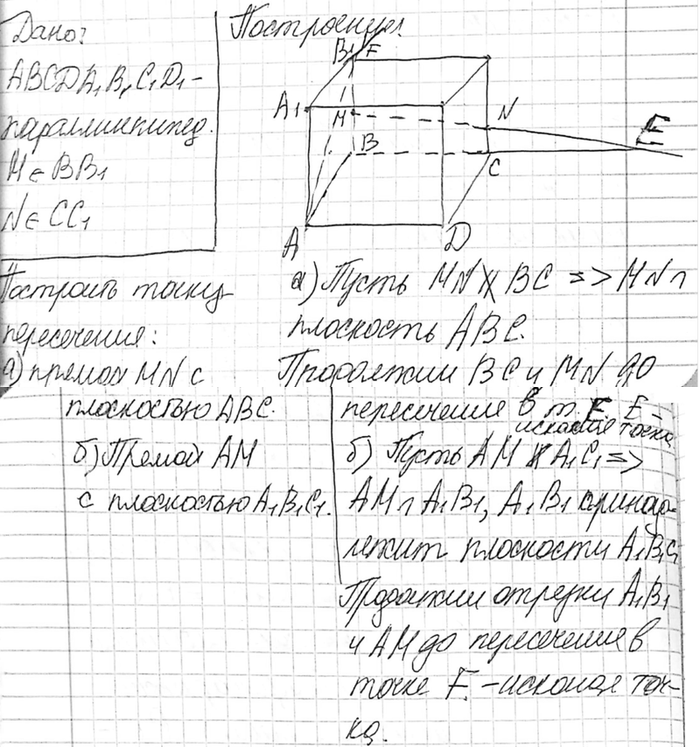 Дано:
ABCDA₁B₁C₁D₁ -
параллилипипед.
M ∈ BB₁
N ∈ CC₁
Построить точку
пересечения:
а) прямой MN с
плоскостью ABC.
б) Прямой AM
с плоскостью A₁B₁C₁.
Построения:
B₁ F
A₁
M
N
B
E
C
A
D
а) Пусть MN ∦ BC => MN ∩
плоскость ABC.
Продолжим BC и MN до
пересечения в т. E. E -
искомая точка
б) Пусть AM ∦ A₁C₁ =>
AM ∩ A₁B₁, A₁B₁ принад-
лежит плоскости A₁B₁C₁
Продолжим отрезки A₁B₁
и AM до пересечения в
точке F. - искомая точ-
ка.